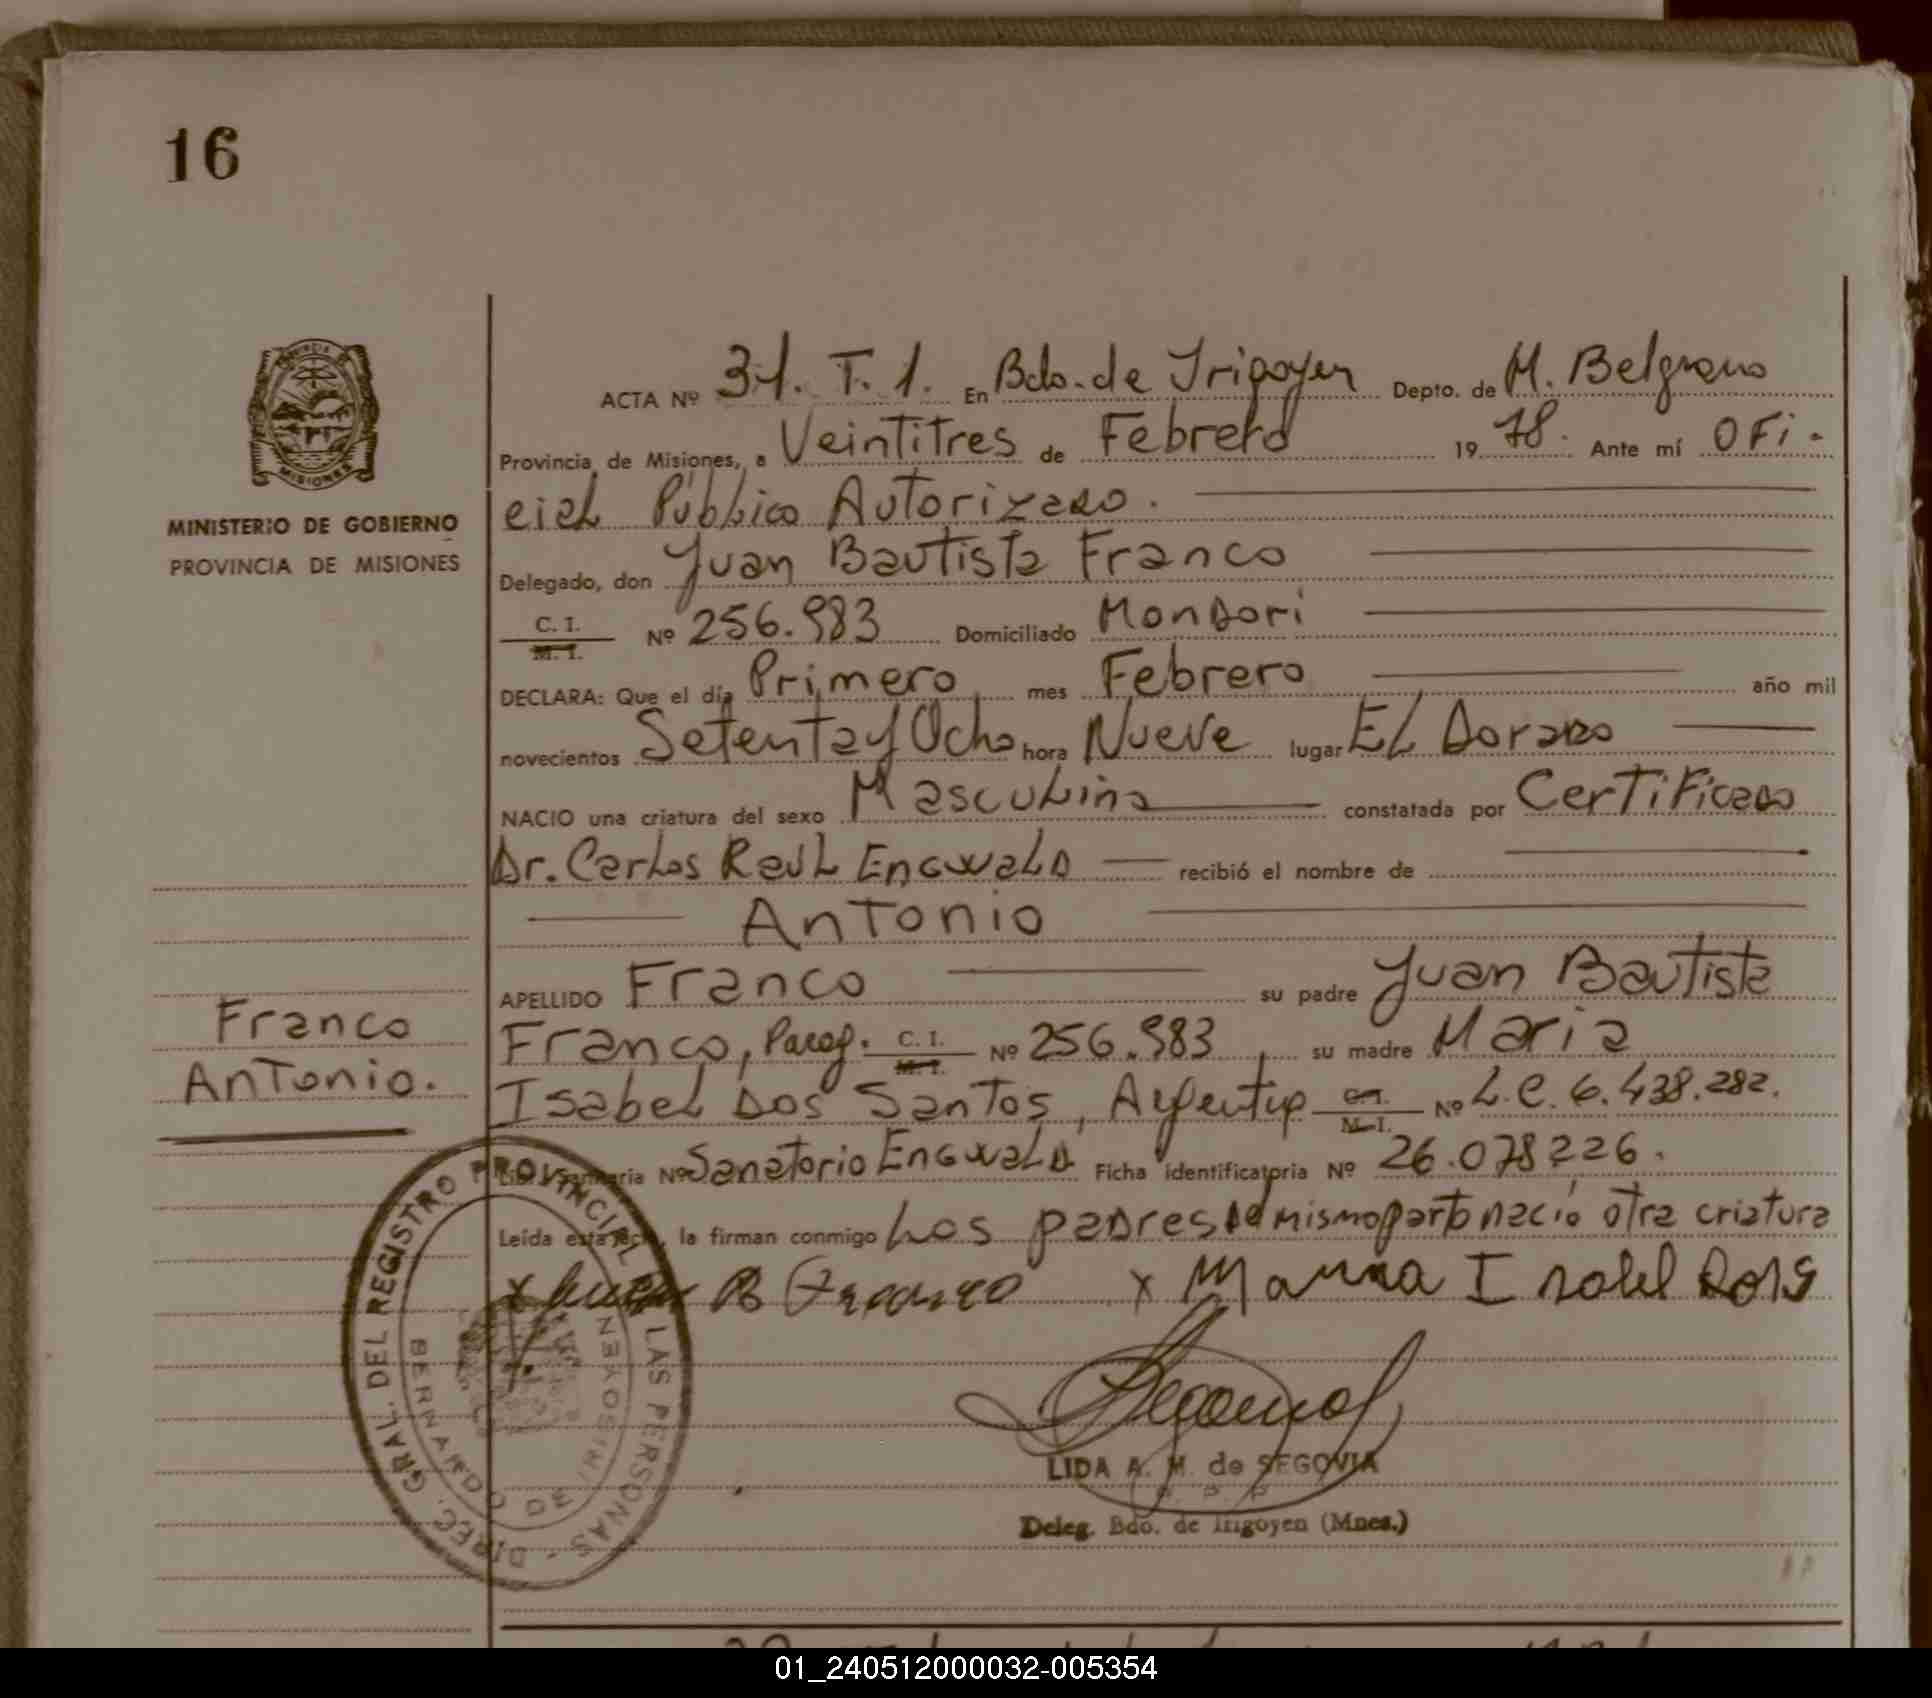 16
PROVINCIA DE
MISIONES
MINISTERIO DE GOBIERNO
PROVINCIA DE MISIONES
ACTA Nº 31. T. 1. En Bdo. de Irigoyen Depto. de M. Belgrano
Provincia de Misiones, a Veintitres de Febrero 1978. Ante mí OFi-
cial Público Autorizado.
Delegado, don Juan Bautista Franco
C. I.
M. I. Nº 256.983 Domiciliado Mondori
DECLARA: Que el día Primero mes Febrero año mil
novecientos Setenta y Ocho hora Nueve lugar EL Dorado
NACIO una criatura del sexo Masculino constatada por Certificado
Dr. Carlos Raúl Engwald recibió el nombre de
Antonio
APELLIDO Franco su padre Juan Bautista
Franco, Parag. C. I. M. I. Nº 256.983, su madre Maria
Isabel Dos Santos, Argentina C. I. M. I. Nº L.C. 6.438.282.
Lib. Sanitaria Nº Sanatorio Engwald Ficha identificatoria Nº 26.078226.
Leída esta acta, la firman conmigo Los padres del mismo parto nació otra criatura
x Juan B Franco x Maria Isabel Dos S
Franco
Antonio.
DIREC. GRAL. DEL REGISTRO PROVINCIAL DE LAS PERSONAS
BERNARDO DE IRIGOYEN
Segovia
LIDA A. M. de SEGOVIA
O. P. P.
Deleg. Bdo. de Irigoyen (Mnes.)
01_240512000032-005354